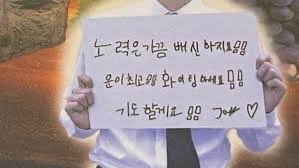 노력은가끔 배신하지요ㅠㅠ
운이최고예 화이팅하세요 ㅠㅠ
기도 할게요 ㅠㅠ